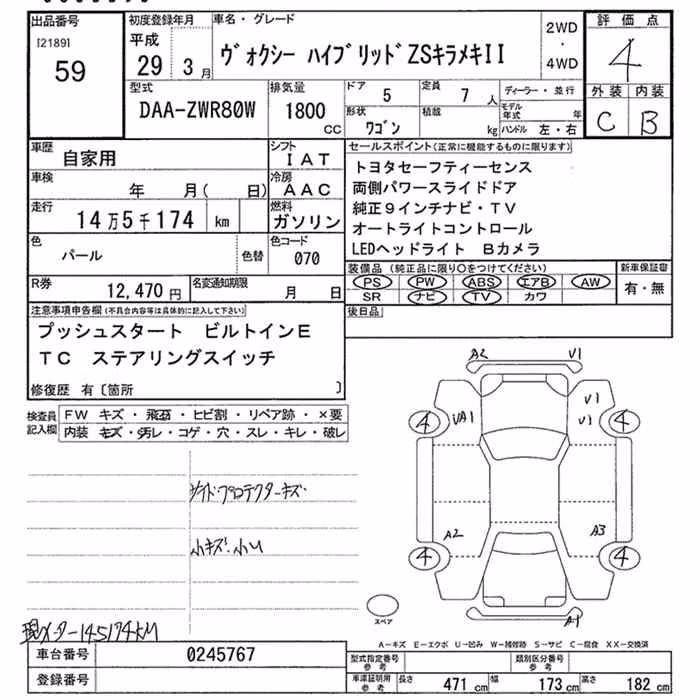 出品番号
[2189]
59
初度登録年月
平成
29 3 月
車名・グレード
ヴォクシー ハイブリッドZSキラメキII
2WD
・
4WD
評価点
4
外装 内装
C B
型式
DAA-ZWR80W
排気量
1800
CC
ドア 5
定員 7 人
形状
ワゴン
積載 kg
ディーラー・並行
モデル年式 年
ハンドル 左・右
車歴
自家用
シフト
IAT
車検
年 月( 日)
冷房
AAC
走行
14万5千174 km
燃料
ガソリン
色
パール
色替
色コード
070
R券
12,470 円
名変通知期限
月 日
セールスポイント(正常に機能するものに限ります)
トヨタセーフティーセンス
両側パワースライドドア
純正9インチナビ・TV
オートライトコントロール
LEDヘッドライト Bカメラ
装備品(純正品に限り○をつけてください)
PS PW ABS エアB AW
SR ナビ TV カワ
新車保証書
有・無
後日品
注意事項申告欄(不具合内容等は具体的に記入して下さい)
プッシュスタート ビルトインE
TC ステアリングスイッチ
修復歴 有〔箇所 〕
検査員
記入欄
FW キズ・飛石・ヒビ割・リペア跡・×要
内装 キズ・汚レ・コゲ・穴・スレ・キレ・破レ
サイドプロテクターキズ
小キズ・小U
現メーター145174KM
A2 V1
4 UA1 V1 V1 4
A2 A3
4 4
A1
スペア
A―キズ E―エクボ U―凹み W―補修跡 S―サビ C―腐食 XX―交換済
車台番号 0245767
登録番号
型式指定番号
参考
類別区分番号
参考
車庫証明用
参考
長さ 471 cm
幅 173 cm
高さ 182 cm